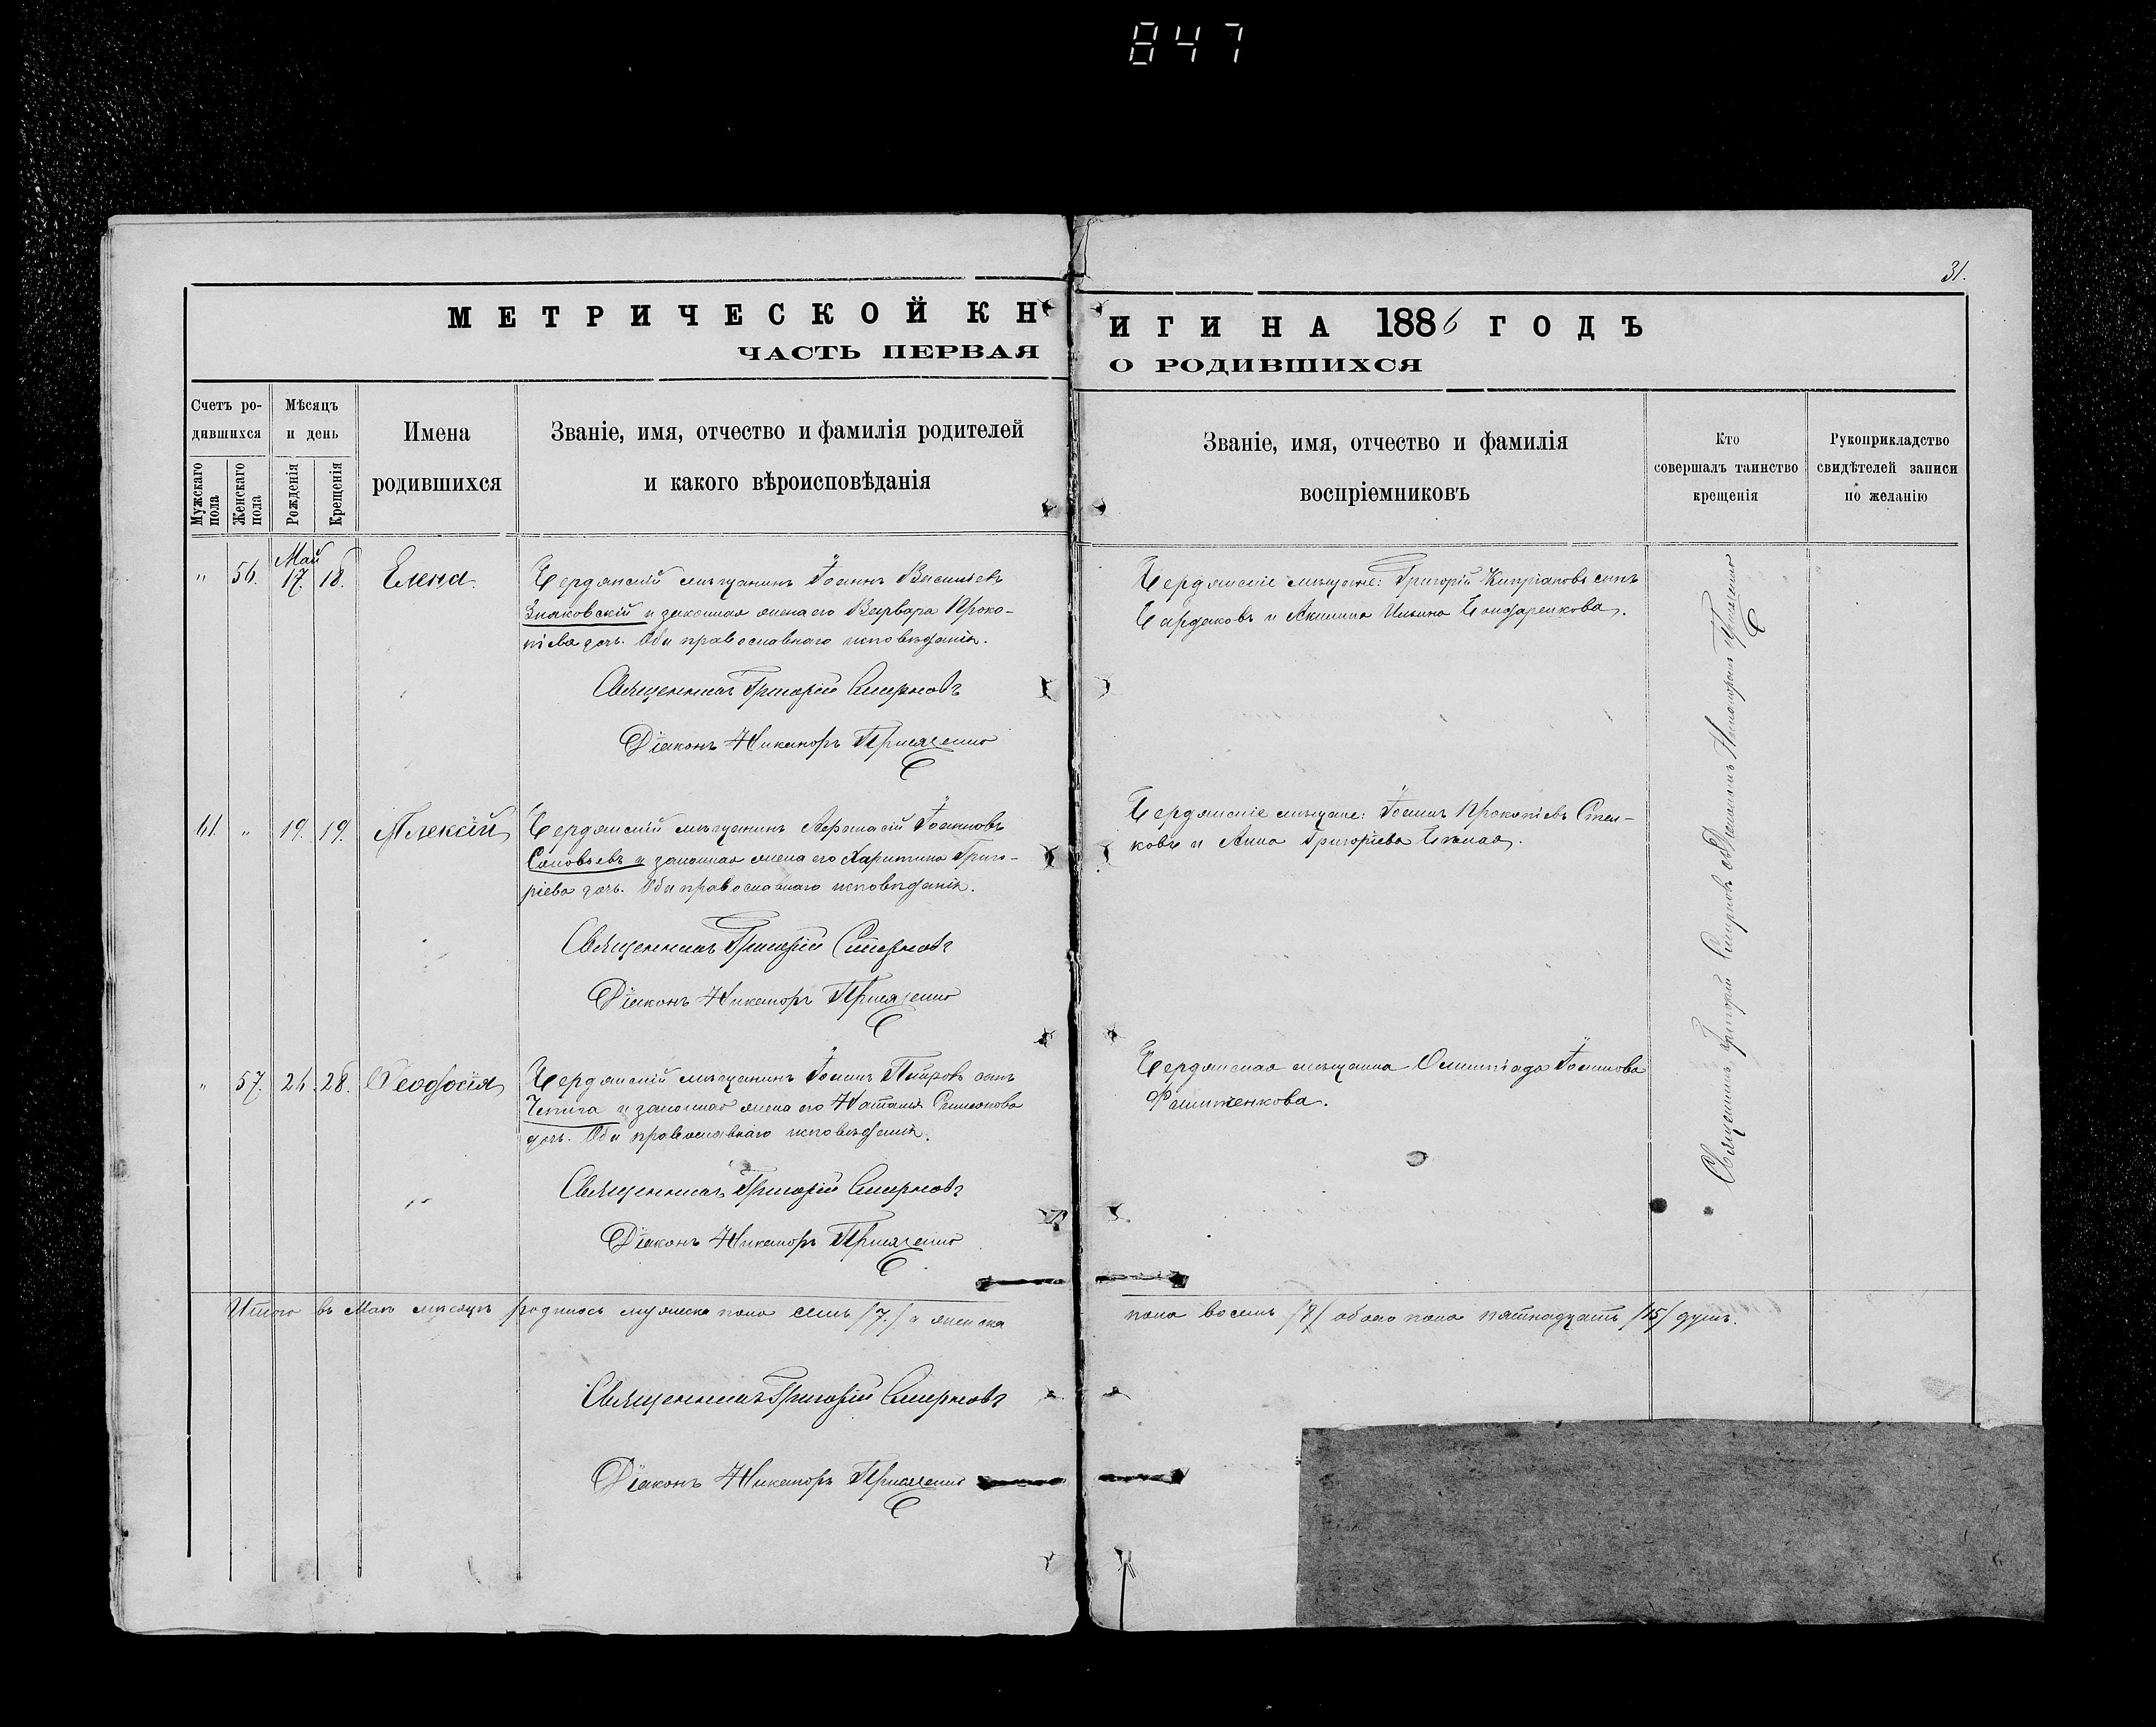 847
31.
МЕТРИЧЕСКОЙ КНИГИ НА 1886 ГОДЪ
ЧАСТЬ ПЕРВАЯ О РОДИВШИХСЯ
Счетъ ро-
дившихся
Мужскаго пола
Женскаго пола
Мѣсяцъ
и день
Рожденія
Крещенія
Имена
родившихся
Званіе, имя, отчество и фамилія родителей
и какого вѣроисповѣданія
Званіе, имя, отчество и фамилія
воспріемниковъ
Кто
совершалъ таинство
крещенія
Рукоприкладство
свидѣтелей записи
по желанію
Май
" 56. 17. 18. Елена.
Бердянскій мѣщанинъ Іоаннъ Васильевъ
Знаковскій и законная жена его Варвара Проко-
піева дочь. Оба православнаго исповѣданія.
Священникъ Григорій Смирновъ
Діаконъ Никаноръ
Бердянскіе мѣщане: Григорій Кипріановъ сынъ
Бардаковъ и Акилина Ильина Бондаренкова.
61. " 19. 19. Алексій
Бердянскій мѣщанинъ Аѳанасій Іоанновъ
Соловьевъ и законная жена его Харитина Григо-
ріева дочь. Оба православнаго исповѣданія.
Священникъ Григорій Смирновъ
Діаконъ Никаноръ
Бердянскіе мѣщане: Іоаннъ Прокопіевъ
и Анна Григоріева Бѣлая.
" 57. 26. 28. Ѳеодосія
Бердянскій мѣщанинъ Іоаннъ Петровъ сынъ
Чепига и законная жена его Наталія Симеонова
дочь. Оба православнаго исповѣданія.
Священникъ Григорій Смирновъ
Діаконъ Никаноръ
Бердянская мѣщанка Олимпіада Іоаннова
Филипенкова.
Священникъ Григорій Смирновъ съ Діакономъ Никаноромъ
Итого въ Маѣ мѣсяцѣ родилось мужеска пола семь /7./ и женска
пола восемь /8/ обоего пола пятнадцать /15/ душъ.
Священникъ Григорій Смирновъ
Діаконъ Никаноръ